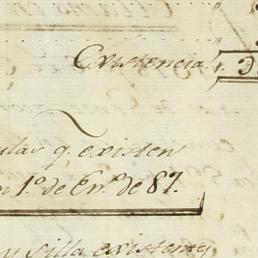 Existencia
q. existen
1.º de En.º de 87.
y silla existentes